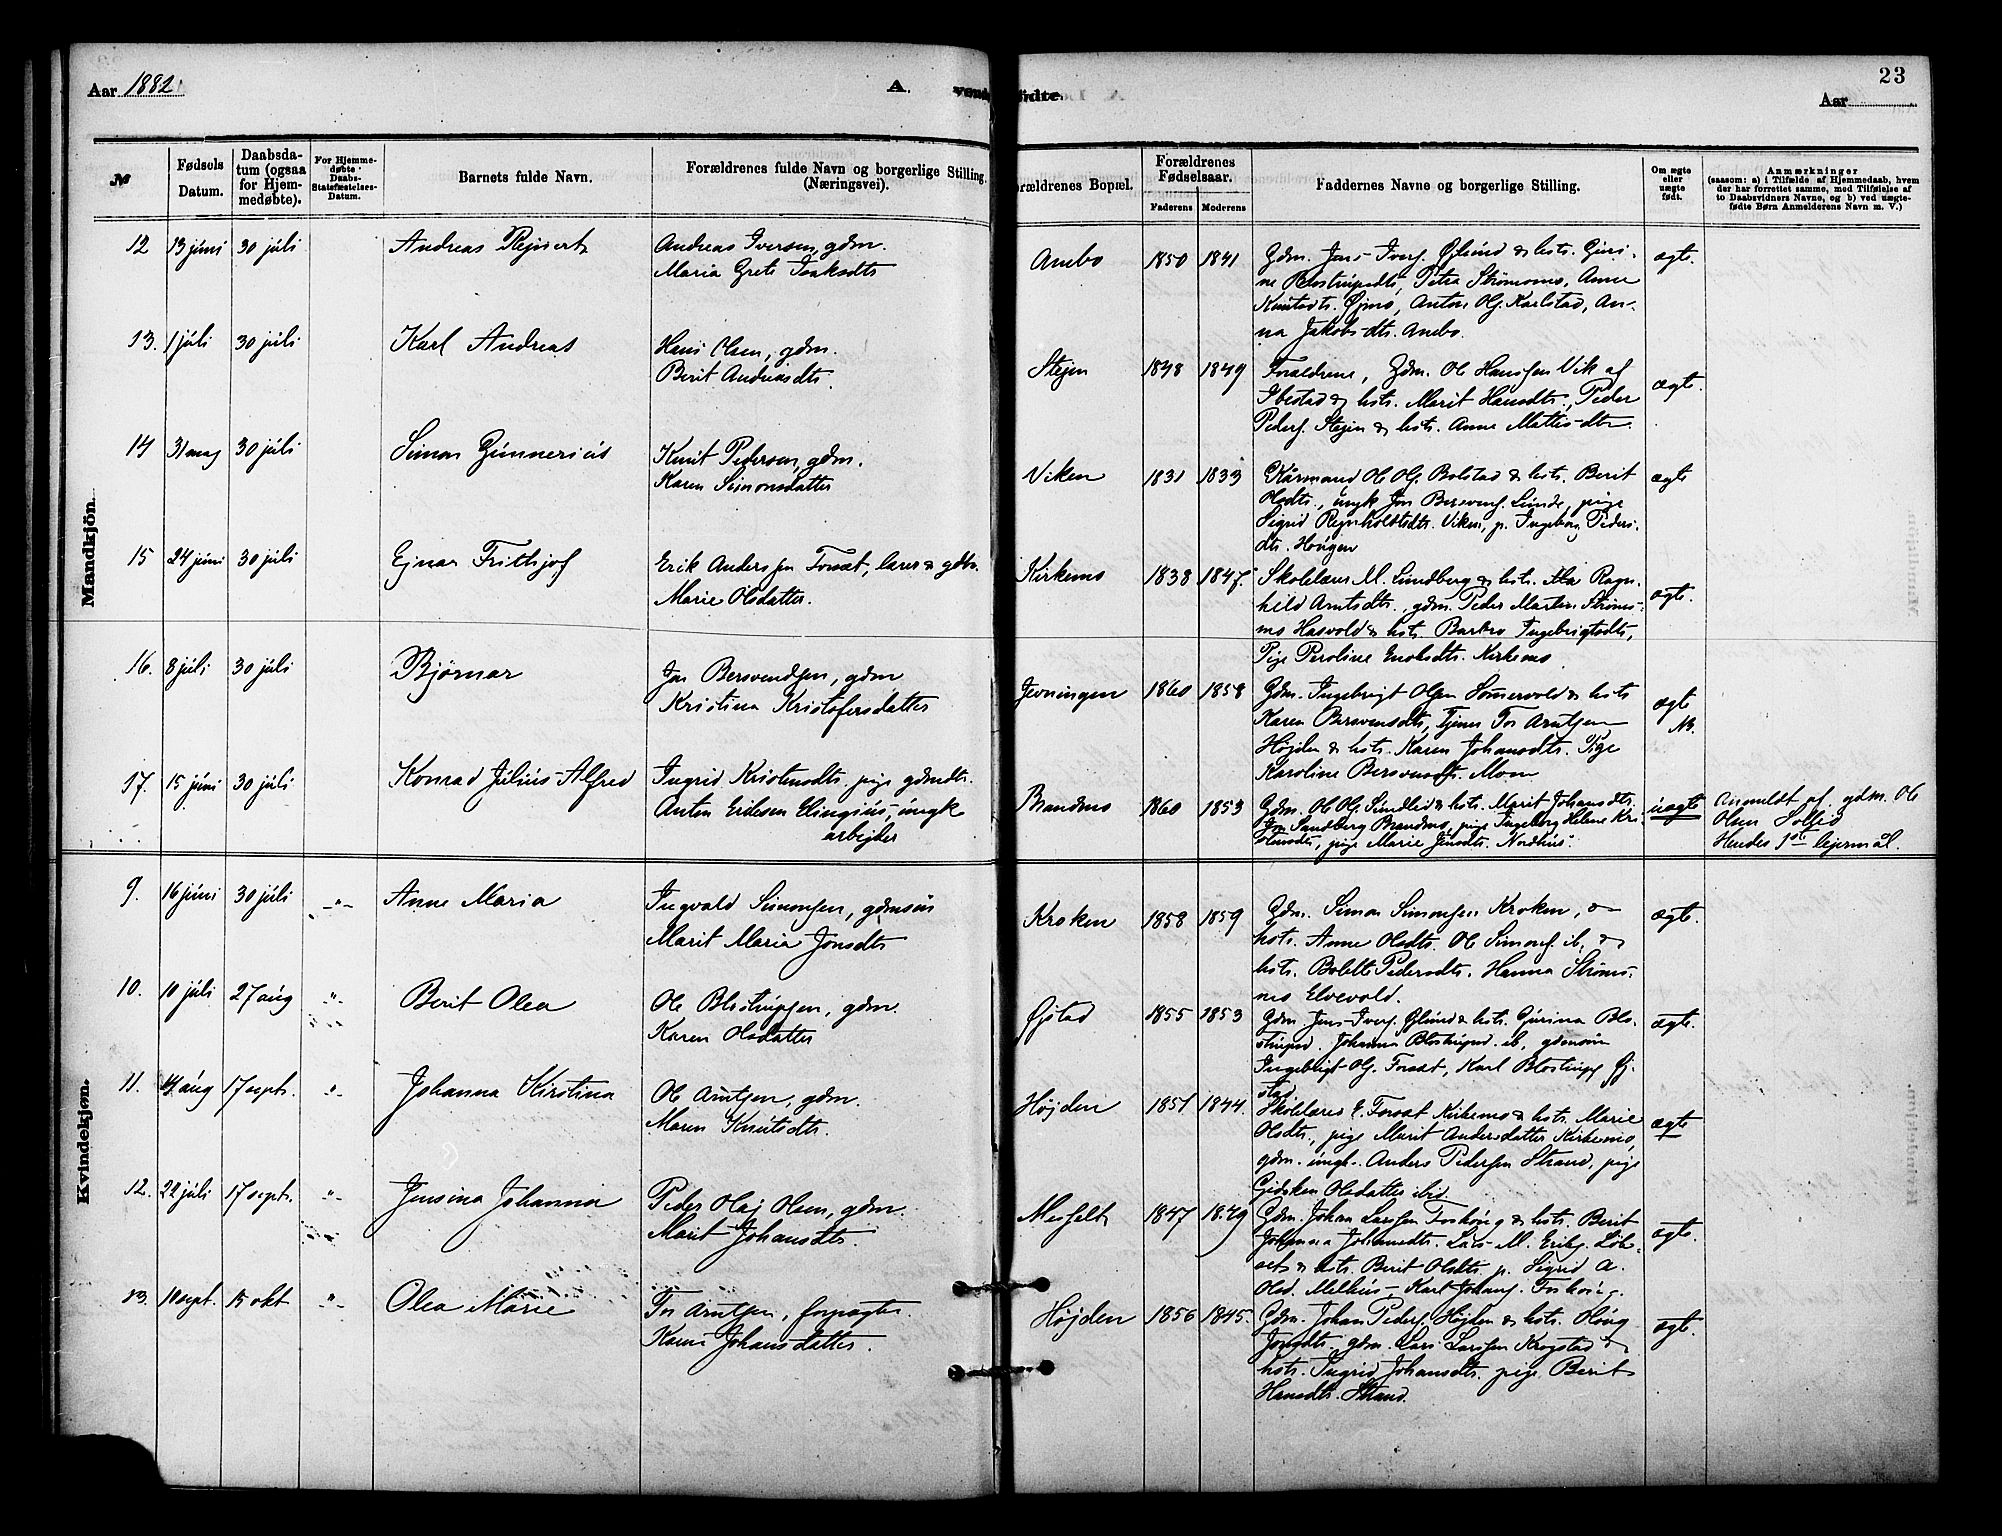 Aar 1882
A.
23
Aar
№
Fødsels Datum.
Daabsdatum (ogsaa for Hjemmedøbte).
For Hjemmedøbte Daabs-Stadfæstelses-Datum.
Barnets fulde Navn.
Forældrenes fulde Navn og borgerlige Stilling. (Næringsvei).
Forældrenes Fødselsaar.
Faderens
Moderens
Faddernes Navne og borgerlige Stilling.
Om ægte eller uægte født.
Anmærkninger
(saasom: a) i Tilfælde af Hjemmedaab, hvem der har forrettet samme, med Tilføielse af to Daabsvidners Navne, og b) ved uægtefødte Børn Anmelderens Navn m. V.)
Mandkjön.
12 13 juni 30 juli Andreas Andreas Iversen, gdm.
Maria Grete Isaksdtr
Anebo 1850 1841 Gdm. Jens Iver. Øglund & hstr. Guri-
Petra Strømsmo, Anne
Anton Olj. Karlstad, An-
na Jakobsdtr. Anebo.
ægte.
13. 1 juli 30 juli Karl Andreas Hans Olsen, gdm.
Berit Andreasdtr.
Stejen 1848 1849 Forældrene, Gdm. Ole Hanssen Vik af
Ibestad & hstr. Marit Hansdtr., Peder
Peders. Stejen & hstr. Anne Mattisdtr.
ægte.
14 31 mag 30 juli Simon Gunnerius Knut Pedersen, gdm.
Karen Simonsdatter
Viken 1831 1833 Kårmand Ole Olj. Bolstad & hstr. Berit
Olsdtr., ungk Jon Bersvens. Lunde, pige
Sigrid Viken, p. Ingeborg Peders-
dtr. Hougen
ægte
15 24 juni 30 juli Ejnar Frithjof Erik Anderssen Fosset, lærer & gdbr.
Marie Olsdatter.
Kirkemo 1838 1847. Skolelærer M. Lundberg & hstr. Ragn-
hild Arntsdtr., gdm. Peder Martin Strøms-
mo Hasvold & hstr. Barbro Ingebrigtsdtr,
Pige Peroline Enoksdtr. Kirkemo.
ægte.
16. 8 juli 30 juli Bjørnar Jon Bersvendsen, gdm
Kristina Kristofersdatter
1860 1858 Gdm. Ingebrigt Olsen & hstr
Karen Bersvensdtr, Tjener Tor Arntsen
Højden & hstr. Karen Johansdtr. Pige
Karoline Bersvensdtr. Moen
ægte
NB.
17. 15 juni 30 juli Konrad Julius Alfred Ingrid Kristensdtr. pige gdmdtr.
Anton ungk
arbejder
Brandmo 1860 1853 Gdm. Ole Olj. Sundlid & hstr. Marit Johansdtr.
Jon Sandberg Brandmo, pige Ingeborg Helene Kri-
stensdtr, pige Marie Jensdtr. Nordhus.
uægte
Anmeldt af gdm. Ole
Olsen Sollid
Hendes 1ste lejermål.
Kvindekjøn.
9. 16 juni 30 juli –"– Anne Maria Ingvald Simonsen, gdmsøn
Marit Maria Jonsdtr
Kroken 1858 1859 Gdm. Simon Simonsen Kroken, &
hstr. Anne Olsdtr. Ole Simons. ib, &
hstr. Bolette Pedersdtr. Hanna Strøms-
mo Elvevold.
ægte.
10. 10 juli 27 aug –"– Berit Olea Ole Blostrupsen, gdm.
Karen Olsdatter
Øjstad 1855 1853 Gdm. Jens Ivers. Øglund & hstr. Gurina Blo-
Johanna ib, gdmsøn
Ingebrigt Olj. Fosset, Karl Blostrups Øj-
stad
ægte.
11. 14 aug 17 septr. –"– Johanna Kirstina Ole Arntsen, gdm.
Maren Knutsdtr.
Højden 1851 1844. Skolelærer E. Fosset Kirkemo & hstr. Marie
Olsdtr., pige Marit Andersdatter Kirkemo,
gdm. ungk. Anders Pedersen Strand, pige
Gidsken Olsdatter ibid.
ægte
12. 22 juli 17 septr. –"– Jensina Johanna Peder Olaj Olsen, gdm.
Marit Johansdtr.
Mesfelt 1847 1849 Gdm. Johan Larssen Foshoug & hstr. Berit
Johanna Johannesdtr. Lars M. Eriks. Løb-
set & hstr. Berit Olsdtr. p. Sigrid A.
Olsd. Melhus, Karl Johans. Foshoug.
ægte.
13. 10 sept. 15 okt –"– Olea Marie Tor Arntsen, forpagter
Karen Johansdatter.
Højden 1856 1845. Gdm. Johan Peders. Højden & hstr.
Jonsdtr. gdm. Lars Larssen Krogstad &
hstr. Ingrid Johansdtr. pige Berit
Hansdtr. Strand.
ægte.